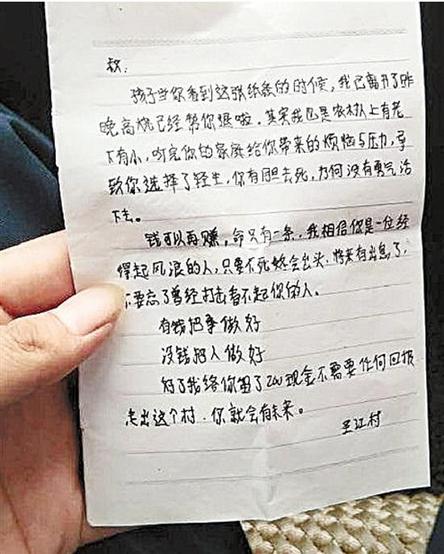 欸:
孩子当你看到这张纸条的时候,我已离开了昨
晚高烧已经帮你退啦。其实我也是农村从上有老
下有小,听完你的家庭给你带来的烦恼与压力,导
致你选择了轻生,你有胆去死,为何没有勇气活
下去。
钱可以再赚,命只有一条,我相信你是一位经
得起风浪的人,只要不死终会出头,将来有出息了,
不要忘了曾经打击看不起你的人。
有钱把事做好
没钱把人做好
对了我给你留了200现金不需要任何回报
走出这个村,你就会有未来。
王江村